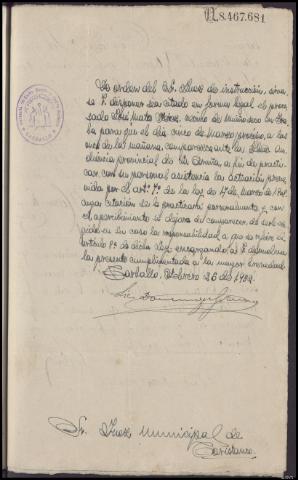 N8.467.681
De orden del Sr. Juez de instrucción, sírva-
se V. disponer sea citado en forma legal el proce-
sado José vecino de
para que el día once de Marzo próximo, a las
once de la mañana, comparezca ante la Ilma Au-
diencia provincial de La Coruña, a fin de practi-
car con su personal asistencia las actuación preve-
nida por el art.º de la ley de 17 de Marzo de
cuya citación se practicará personalmente y con
el apercibimiento si dejara de comparecer, de
en su caso la responsabilidad a que se refiere el
artículo de dicha ley encargando a V. devuelva
la presente cumplimentada a la mayor brevedad.
Carballo, Febrero 26 de 1924
Sr. Juez municipal de
Coristanco.